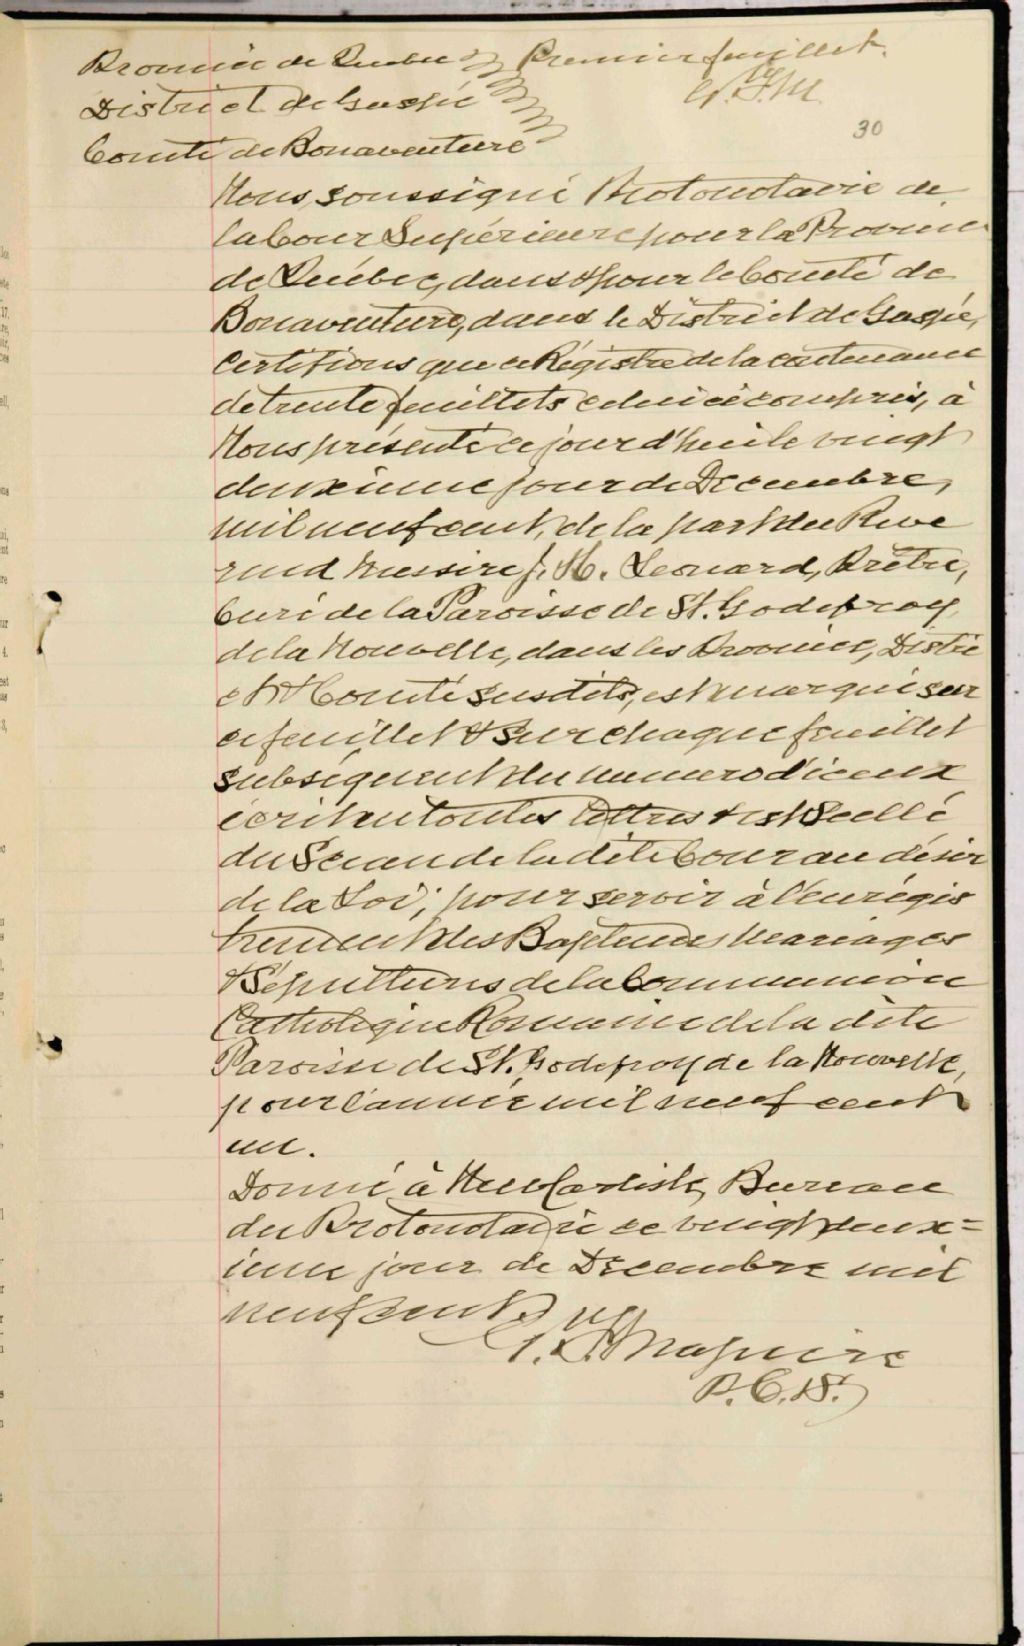 Province de Québec } Premier feuillet.
District de Gaspé
30
Comté de Bonaventure
Nous, soussigné Protonotaire de
la Cour Supérieure pour la Province
de Québec, dans & pour le Comté de
Bonaventure, dans le District de Gaspé,
Certifions que ce Régistre de la contenance
de trente feuillets celui ci compris, à
Nous présenté ce jour d'hui le vingt
deuxieme jour de Decembre,
mil neuf cent, de la part du Reve
rend Messire J. H. Leonard, Prêtre,
Curé de la Paroisse de St. Godefroy
de la Nouvelle, dans les Province, Distric
et Comté susdits, est marqué sur
ce feuillet & sur chaque feuillet
subséquent du numero d'iceux
écrit en toutes lettres & est Scellé
du Sceau de la dite Cour au désir
de la Loi; pour servir à l'enrégis
trement des Baptemes, Mariages
& Sépultures de la Communion
Catholique Romaine de la dite
Paroisse de St. Godefroy de la Nouvelle,
pour l'année mil neuf cent
un.
Donné à New Carlisle, Bureau
du Protonotaire ce vingt deux=
ieme jour de Decembre mil
neuf cent
Maguire
P.C.S.